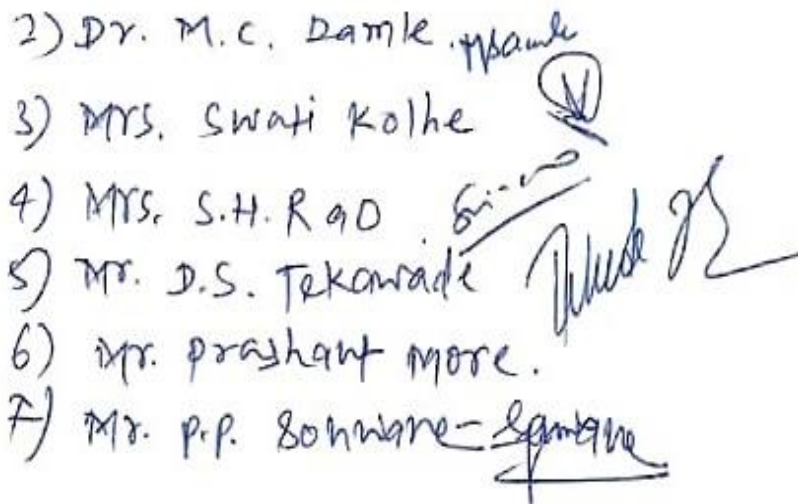 2) Dr. M.C. Damle.
3) Mrs. Swati Kolhe
4) Mrs. S.H. Rao
5) Mr. D.S. Tekawade
6) Mr. Prashant More.
7) Mr. P.P. Sonwane -